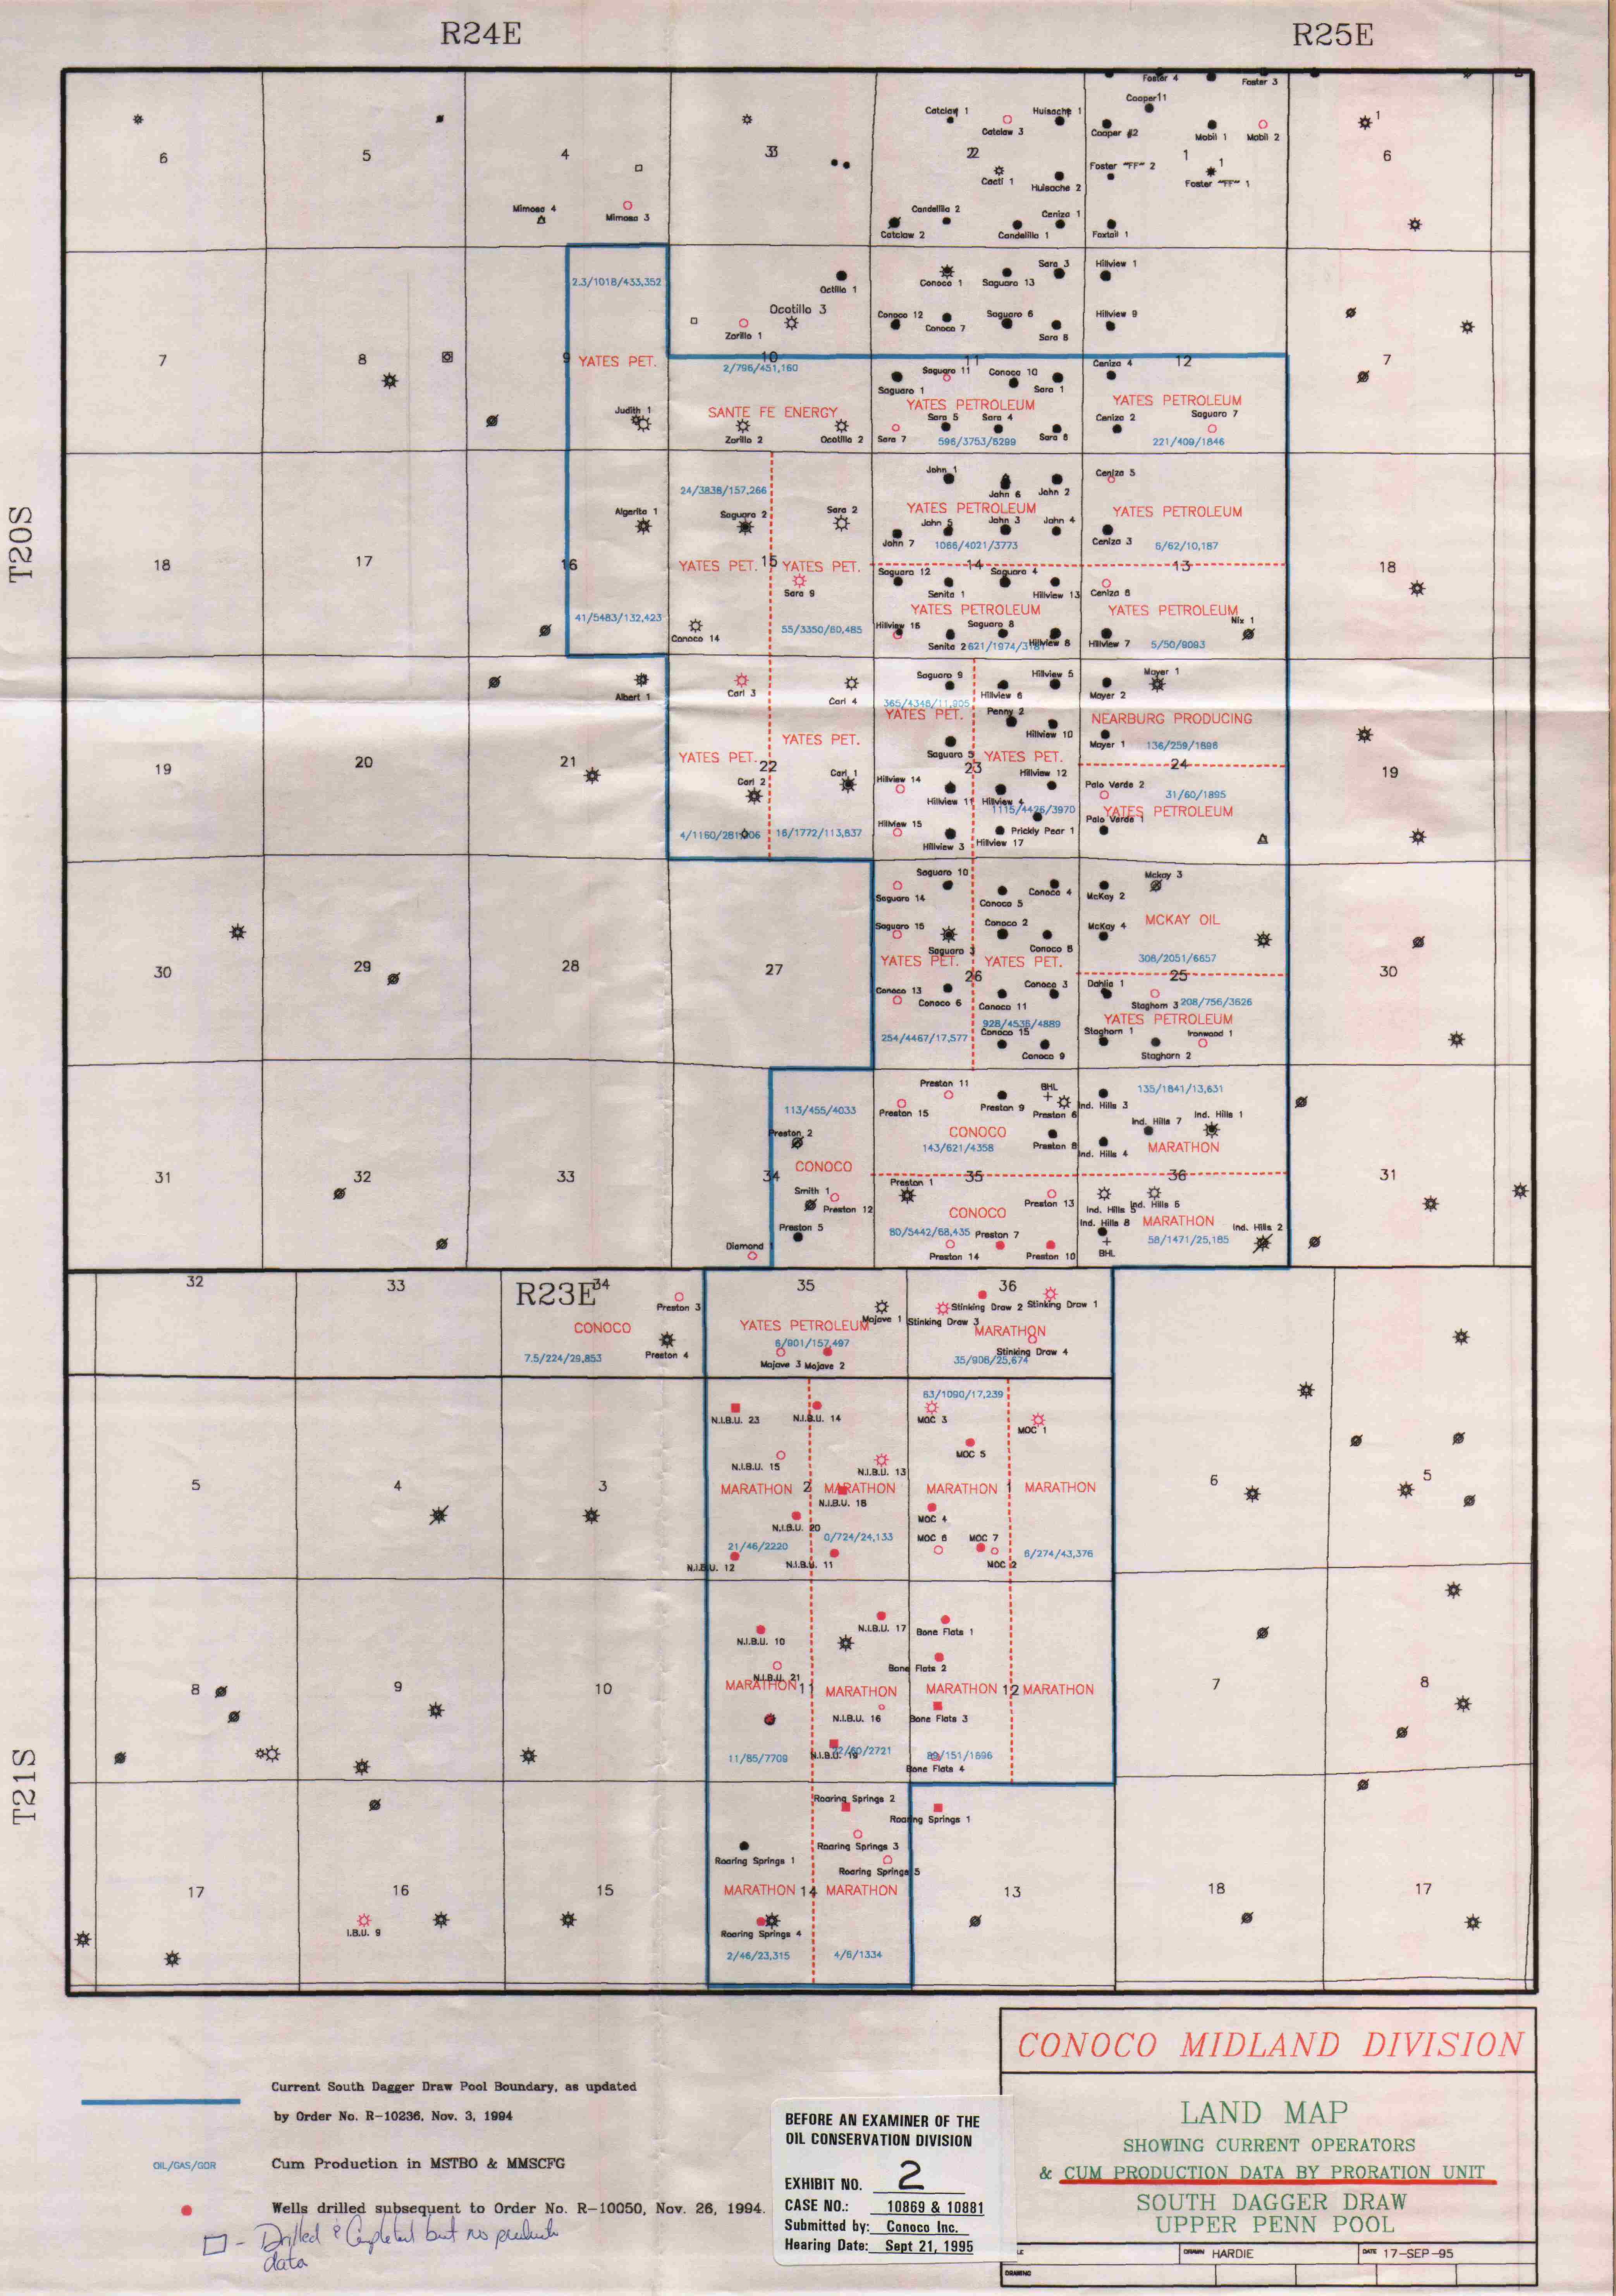 R24E
R25E
Foster 4
Foster 3
Cooper11
Catclaw 1
Huisache 1
Catclaw 3
Cooper #2
Mobil 1
Mobil 2
1
6
5
4
33
22
1
1
6
Foster "FF" 2
Cacti 1
Huisache 2
Foster "FF" 1
Mimosa 4
Mimosa 3
Candelilla 2
Ceniza 1
Catclaw 2
Candelilla 1
Foxtail 1
2.3/1018/433,352
Octillo 1
Conoco 1
Saguaro 13
Sara 3
Hillview 1
Ocotillo 3
Zorillo 1
Conoco 12
Conoco 7
Saguaro 6
Sara 8
Hillview 9
7
8
9
YATES PET.
10
2/796/451,160
11
12
7
Saguaro 11
Conoco 10
Ceniza 4
Saguaro 1
Sara 1
Judith 1
SANTE FE ENERGY
YATES PETROLEUM
YATES PETROLEUM
Zorillo 2
Ocotillo 2
Sara 7
Sara 5
Sara 4
Sara 6
Ceniza 2
Saguaro 7
596/3753/6299
221/409/1846
T20S
24/3838/157,266
John 1
John 6
John 2
Ceniza 5
Algerita 1
Saguaro 2
Sara 2
YATES PETROLEUM
YATES PETROLEUM
John 5
John 3
John 4
John 7
1066/4021/3773
Ceniza 3
6/62/10,187
18
17
16
YATES PET.
15
YATES PET.
14
13
18
Sara 9
Saguaro 12
Senita 1
Saguaro 4
Hillview 13
Ceniza 6
YATES PETROLEUM
YATES PETROLEUM
41/5483/132,423
Conoco 14
55/3350/60,485
Hillview 16
Saguaro 8
Senita 2
Hillview 8
Hillview 7
5/50/9083
Nix 1
Albert 1
Carl 3
Carl 4
Saguaro 9
Hillview 6
Hillview 5
Mayer 2
Mayer 1
365/4346/11,905
YATES PET.
Penny 2
Hillview 10
NEARBURG PRODUCING
Mayer 1
136/259/1898
19
20
21
YATES PET.
22
YATES PET.
Saguaro 5
YATES PET.
23
24
19
Carl 2
Carl 1
Hillview 14
Hillview 12
Palo Verde 2
31/60/1895
Hillview 11
Hillview 4
1115/4426/3970
YATES PETROLEUM
Palo Verde 1
4/1160/281,906
16/1772/113,837
Hillview 15
Hillview 3
Hillview 17
Prickly Pear 1
Saguaro 10
Saguaro 14
Conoco 5
Conoco 4
McKay 2
Mckay 3
Saguaro 15
Saguaro 3
Conoco 2
Conoco 8
McKay 4
MCKAY OIL
308/2051/6657
30
29
28
27
YATES PET.
YATES PET.
26
25
30
Conoco 13
Conoco 6
Conoco 11
Conoco 3
Dahlia 1
Staghorn 3
208/756/3626
YATES PETROLEUM
254/4467/17,577
928/4536/4889
Conoco 15
Conoco 9
Staghorn 1
Staghorn 2
Ironwood 1
113/455/4033
Preston 11
Preston 15
Preston 9
BHL
Preston 6
Ind. Hills 3
135/1841/13,631
Ind. Hills 7
Ind. Hills 1
Preston 2
CONOCO
143/621/4358
Preston 8
Ind. Hills 4
MARATHON
31
32
33
34
CONOCO
35
36
31
Smith 1
Preston 12
Preston 1
Preston 13
Ind. Hills 5
Ind. Hills 6
CONOCO
Ind. Hills 8
MARATHON
Preston 5
80/5442/68,435
Preston 7
58/1471/25,185
Ind. Hills 2
Diamond
Preston 14
Preston 10
BHL
32
33
R23E
34
35
36
Preston 3
CONOCO
7.5/224/29,853
Preston 4
YATES PETROLEUM
Mojave 1
6/901/157,497
Mojave 3
Mojave 2
Stinking Draw 2
Stinking Draw 1
Stinking Draw 3
MARATHON
Stinking Draw 4
35/906/25,674
63/1090/17,239
N.I.B.U. 23
N.I.B.U. 14
MOC 3
MOC 1
N.I.B.U. 15
N.I.B.U. 13
MOC 5
5
4
3
MARATHON
2
MARATHON
MARATHON
1
MARATHON
6
5
N.I.B.U. 18
N.I.B.U. 20
MOC 4
21/46/2220
0/724/24,133
MOC 6
MOC 7
MOC 2
6/274/43,376
N.I.B.U. 12
N.I.B.U. 11
N.I.B.U. 10
N.I.B.U. 17
Bone Flats 1
Bone Flats 2
N.I.B.U. 21
8
9
10
MARATHON
11
MARATHON
MARATHON
12
MARATHON
7
8
N.I.B.U. 16
Bone Flats 3
11/85/7709
N.I.B.U. 19
89/151/1696
Bone Flats 4
T21S
Roaring Springs 2
Roaring Springs 1
Roaring Springs 1
Roaring Springs 3
Roaring Springs 5
17
16
15
MARATHON
14
MARATHON
13
18
17
I.B.U. 9
Roaring Springs 4
2/46/23,315
4/6/1334
Current South Dagger Draw Pool Boundary, as updated
by Order No. R-10236, Nov. 3, 1994
OIL/GAS/GOR
Cum Production in MSTBO & MMSCFG
Wells drilled subsequent to Order No. R-10050, Nov. 26, 1994.
- Drilled & Completed but no production
data
BEFORE AN EXAMINER OF THE
OIL CONSERVATION DIVISION
EXHIBIT NO. 2
CASE NO.: 10869 & 10881
Submitted by: Conoco Inc.
Hearing Date: Sept 21, 1995
CONOCO MIDLAND DIVISION
LAND MAP
SHOWING CURRENT OPERATORS
& CUM PRODUCTION DATA BY PRORATION UNIT
SOUTH DAGGER DRAW
UPPER PENN POOL
DRAWN HARDIE
DATE 17-SEP-95
DRAWING